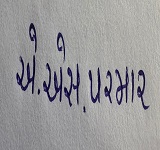 એ. એસ. પરમાર